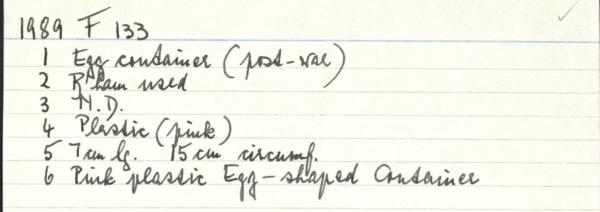 1989 F 133
1 Egg container (post-war)
2 R'ham used
3 N.D.
4 Plastic (pink)
5 7cm lg. 15cm circumf.
6 Pink plastic Egg-shaped Container